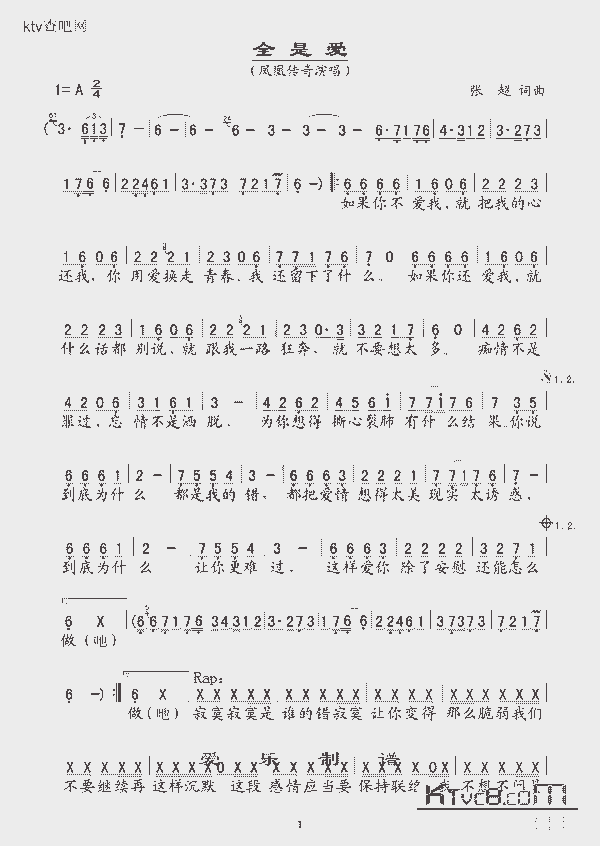 ktv查吧网
全是爱
(凤凰传奇演唱)
1=A 2/4
张超 词曲
(3· 613 | 7 - | 6 - | 6 - | 6 - | 3 - | 3 - | 3 - | 6·7176 | 4·312 | 3·273 |
1766 | 22461 | 3·373 7217 | 6 -) |: 6666 | 1606 | 2223 |
如果你不 爱我,就 把我的心
1606 | 2221 | 2306 | 77176 | 70 6666 | 1606 |
还我,你 用爱换走 青春,我 还留下了什 么。 如果你还 爱我,就
2223 | 1606 | 2221 | 230·3 | 3217 | 60 4262 |
什么话都 别说,就 跟我一路 狂奔、就 不要想太 多。 痴情不是
1.2.
4206 | 3161 | 3 - | 4262 | 4561 | 77176 | 7 35 |
罪过,忘 情不是洒 脱, 为你想得 撕心裂肺 有什么结 果。你说
6661 | 2 - | 7554 | 3 - | 6663 | 2221 | 77176 | 7 - |
到底为什 么 都是我的 错、 都把爱情 想得太美 现实 太诱 惑,
1.2.
6661 | 2 - | 7554 | 3 - | 6663 | 2222 | 3271 |
到底为什 么 让你更难 过, 这样爱你 除了安慰 还能怎么
6 X | (667176 34312 | 3·273 | 1766 | 22461 | 37373 | 7217 |
做(吔)
6 -) :| 6 X | Rap: X X X X X | X X X X X | X X X X | X X X X X X |
做(吔) 寂寞寂寞是 谁的错寂寞 让你变得 那么脆弱我们
爱乐制谱
X X X X X | X X X X 0 X X | X X X X X X | X X X X 0 X | X X X X X |
不要继续再 这样沉默 这段 感情应当要 保持联络 我 不想不问
KTvc8.coM
1